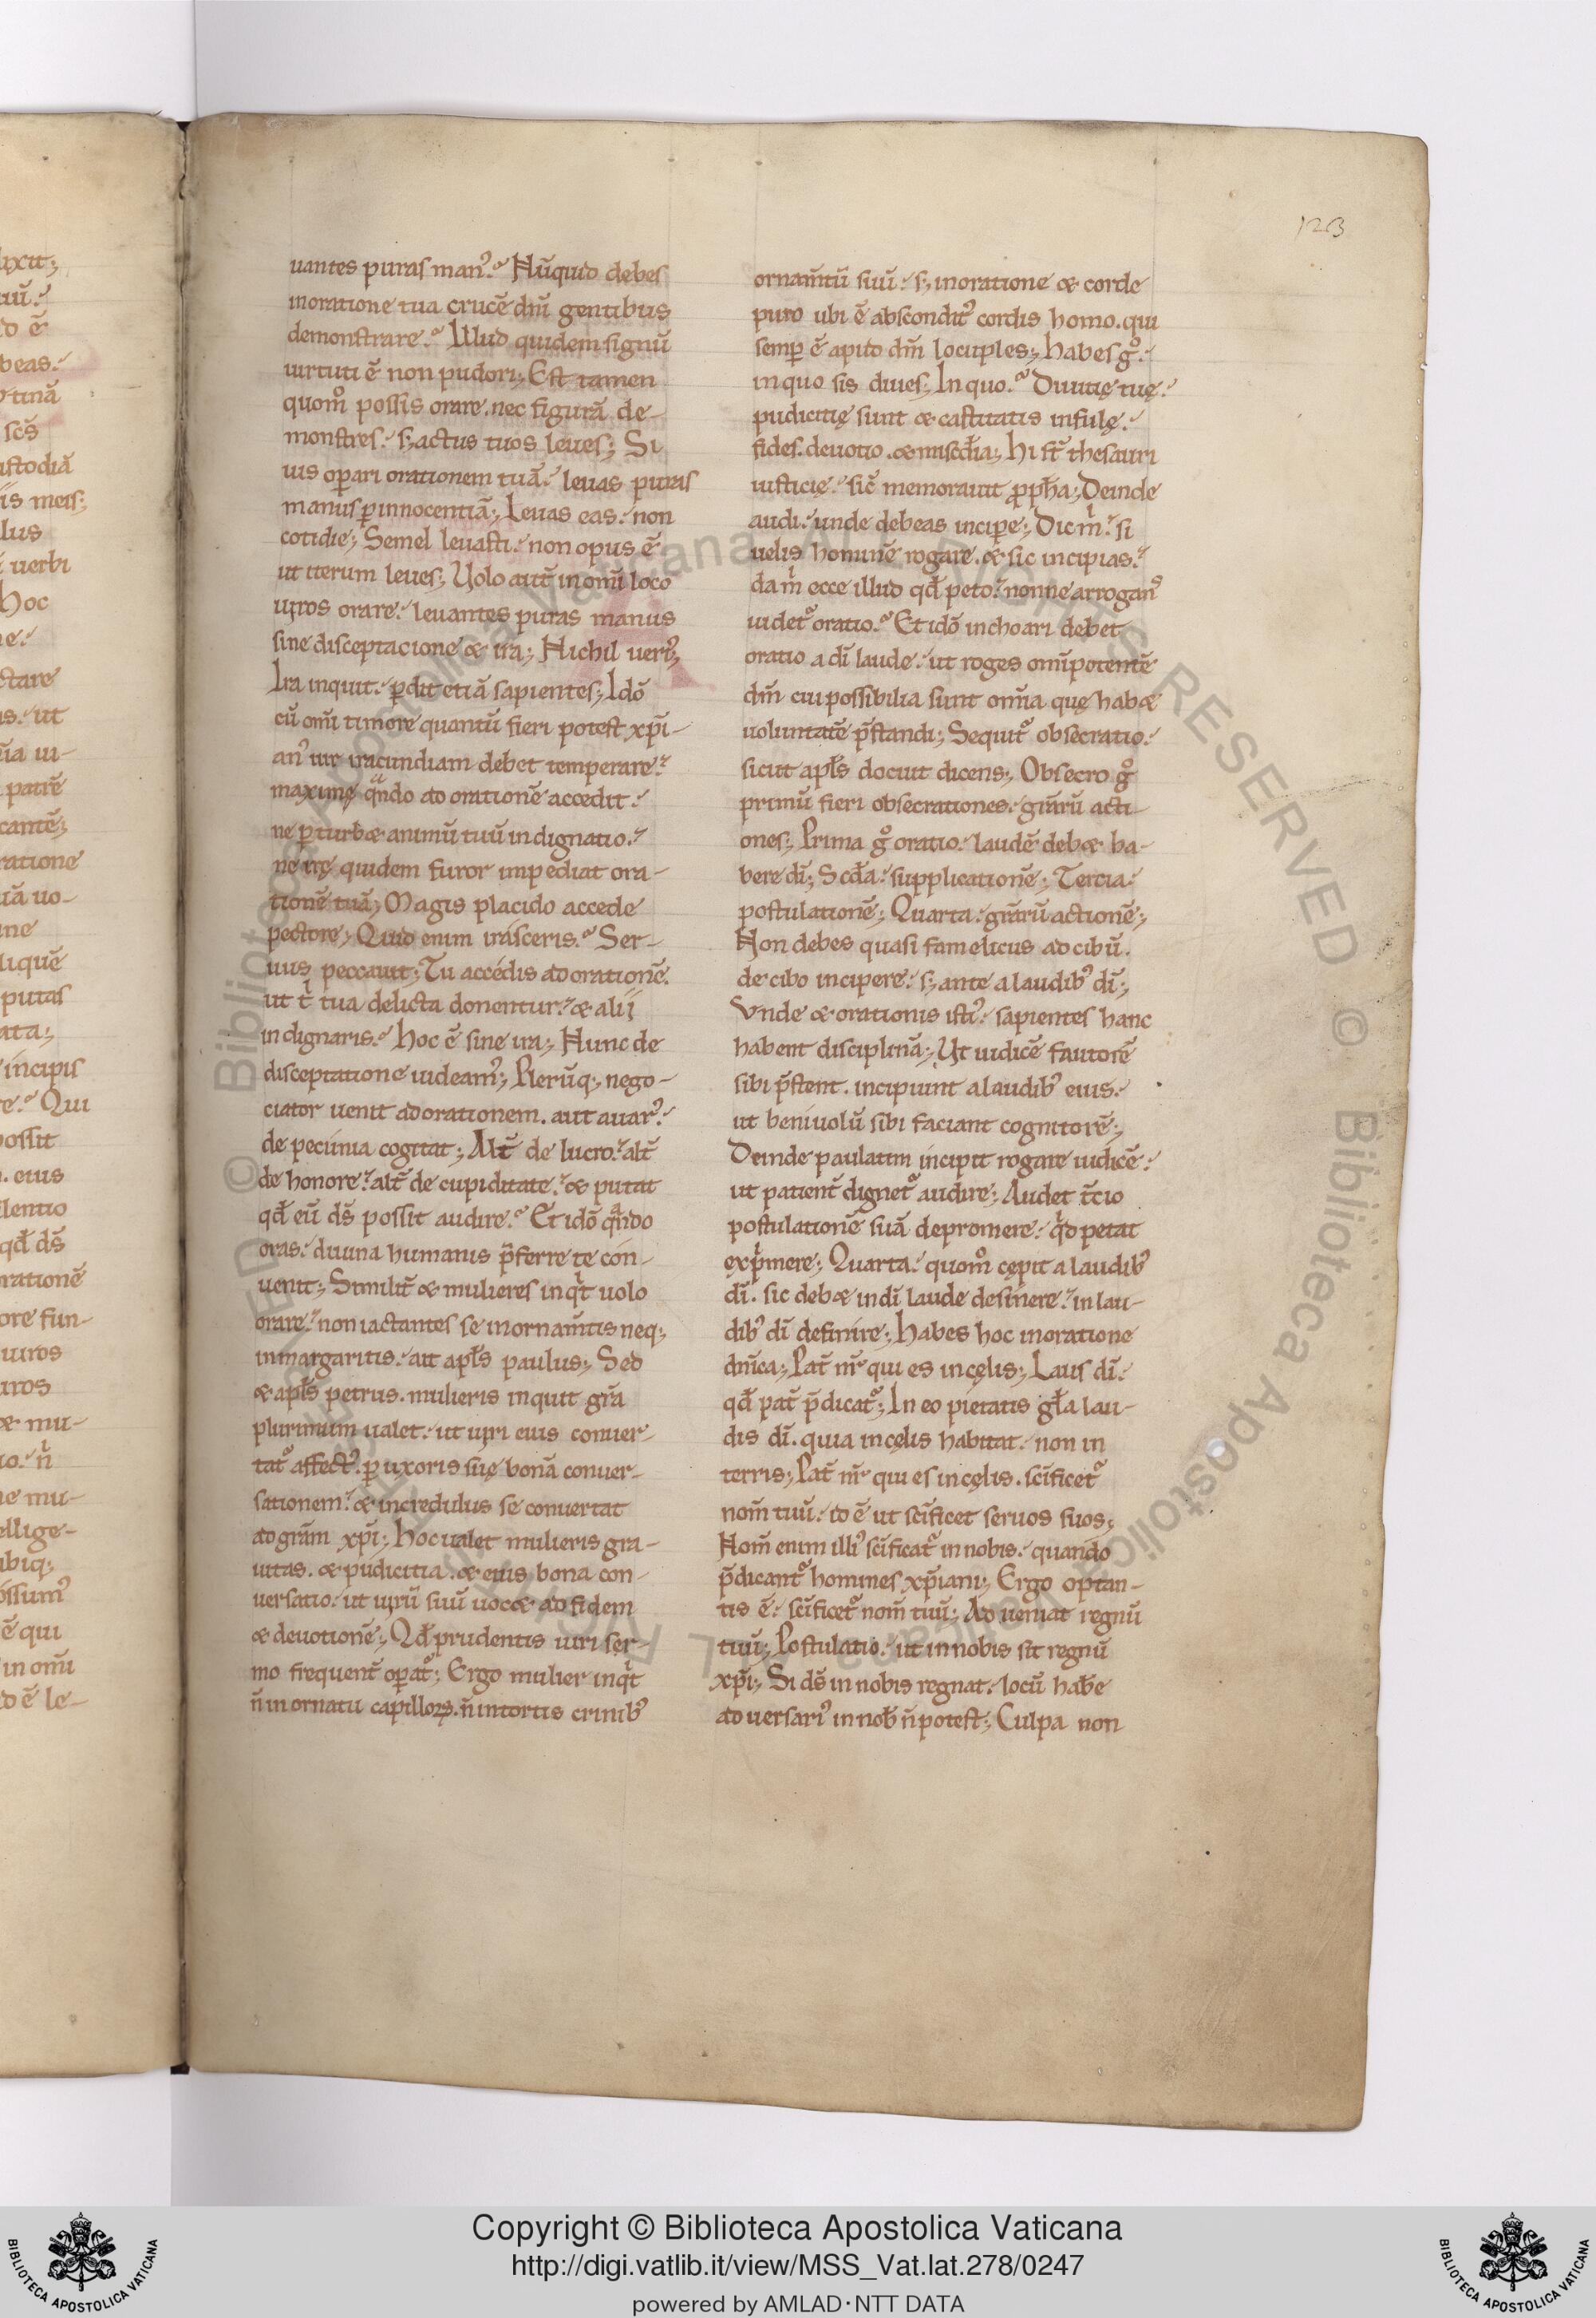 123
uantes puras man᷒. Nūquid debes
inoratione tua crucē dn̄i gentibus
demonstrare. Illud quidem signū
uirtuti ē non pudori; Est tamen
quom̊ possis orare. nec figurā de-
monstres. s; actus tuos leues; Si
uis op̱ari orationem tuā. leuas puras
manus p̱innocentiā; Leuas eas. non
cotidie; Semel leuasti. non opus ē
ut iterum leues; Uolo aut̄ in om̄i loco
uiros orare. leuantes puras manus
sine disceptacione & ira; Nichil ueri᷒;
Ira inquit. p̱dit etiā sapientes; Idō
cū om̄i timore quantū fieri potest xp̄i-
an᷒ uir iracundiam debet temperare.
maximę qͣndo ad orationē accedit.
ne p̱turb& animū tuū indignatio.
ne irę quidem furor impediat ora-
tionē tuā; Magis placido accede
pectore; Quid enim irasceris. Ser-
uus peccauit; Tu accedis ad orationē.
ut tͥ tua delicta donentur. & alii
indignaris. Hoc ē sine ira; Nunc de
disceptatione uideam᷒; Plerūq; nego-
ciator uenit ad orationem. aut auar᷒.
de pecunia cogitat; Alt̄ de lucro. alt̄
de honore. alt̄ de cupiditate. & putat
qđ eū ds̄ possit audire. Et idō qͣndo
oras. diuina humanis p̄ferre te con-
uenit; Similit̄ & mulieres inqͥt uolo
orare. non iactantes se inornam̄tis neq;
inmargaritis. ait apl̄s paulus; Sed
& apl̄s petrus. mulieris inquit gr̄a
plurimum ualet. ut uiri eius conuer-
tat᷒ affect᷒. p̱ uxoris suę bonā conuer-
sationem. & incredulus se conuertat
ad grām xp̄i; Hoc ualet mulieris gra-
uitas. & pudicitia. & eius bona con-
uersatio. ut uirū suū uoc& ad fidem
& deuotionē; Qđ prudentis uiri ser-
mo frequent̄ op̱at᷒; Ergo mulier inqͥt
n̄ in ornatu capilloꝝ. n̄ intortis crinib᷒
ornam̄tū suū. s; inoratione & corde
puro ubi ē abscondit᷒ cordis homo. qui
semp̱ ē apud dn̄m locuples; Habes g̊.
in quo sis diues; In quo. Diuitię tuę.
pudicitię sunt & castitatis infulę.
fides. deuotio. & misc̄dia; Hi st̄ thesauri
iusticię. sic̄ memorauit ꝓph̄a; Deinde
audi. unde debeas incip̱e; Dic mͥ. si
uelis hominē rogare. & sic incipias.
da mͥ ecce illud qđ peto. nonne arrogan᷒
uidet᷒ oratio. Et idō inchoari debet
oratio a dī laude. ut roges om̄ipotentē
dm̄ cui possibilia sunt om̄ia quę hab&
uoluntatē p̄standi; Sequit᷒ obsecratio.
sicut apl̄s docuit dicens; Obsecro g̊
primū fieri obsecrationes. gr̄arū acti-
ones; Prima g̊ oratio. laudē deb& ha-
bere dī; Scd̄a. supplicationē; Tercia.
postulationē; Quarta. gr̄arū actionē;
Non debes quasi famelicus ad cibū.
de cibo incipere. s; ante a laudib᷒ dī;
Unde & orationis isti᷒. sapientes hanc
habent disciplinā; Ut iudicē fautorē
sibi p̄stent. incipiunt a laudib᷒ eius.
ut beniuolū sibi faciant cognitorē;
Deinde paulatim incipit rogare iudicē.
ut patient̄ dignet᷒ audire; Audet t̄cio
postulationē suā depromere. qͥd petat
expͥmere; Quarta. quom̊ cępit a laudib᷒
dī. sic deb& in dī laude desinere. in lau-
dib᷒ dī definire; Habes hoc inoratione
dn̄ica; Pat̄ nr̄ qui es incęlis; Laus dī.
qđ pat̄ p̄dicat᷒; In eo pietatis gl̄a lau-
dis dī. quia incęlis habitat. non in
terris; Pat̄ nr̄ qui es incęlis. sc̄ificet᷒
nom̄ tuū. id ē ut sc̄ificet seruos suos;
Nom̄ enim illi᷒ sc̄ificat᷒ in nobis. quando
p̄dicant᷒ homines xp̄iani; Ergo optan-
tis ē. sc̄ificet᷒ nom̄ tuū; Adueniat regnū
tuū; Postulatio. ut in nobis sit regnū
xp̄i; Si ds̄ in nobis regnat. locū hab̄e
aduersari᷒ in nob̄ n̄ potest; Culpa non
Copyright © Biblioteca Apostolica Vaticana
http://digi.vatlib.it/view/MSS_Vat.lat.278/0247
powered by AMLAD·NTT DATA